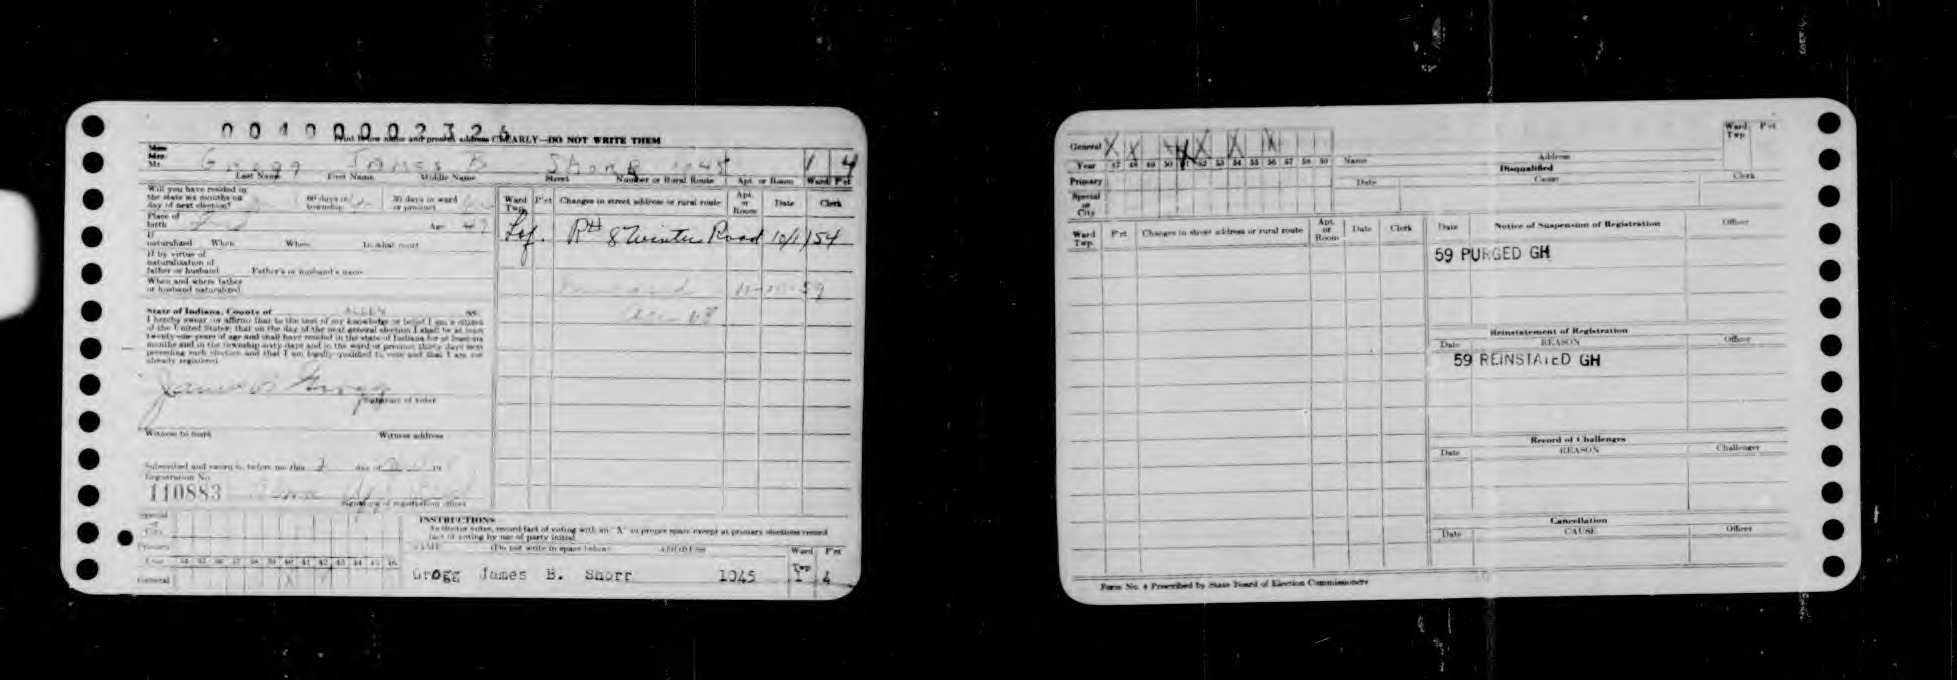 00100002326
Print below name and present address CLEARLY—DO NOT WRITE THEM
Miss
Mrs.
Mr. Grogg James B Shorr 1045 1 4
Last Name First Name Middle Name Street Number or Rural Route Apt. or Room Ward Pct
Will you have resided in
the state six months on
day of next election?
60 days in
township
30 days in ward
or precinct
Place of
birth
Age 47
If
naturalized When Where In what court
If by virtue of
naturalization of
father or husband Father's or husband's name
When and where father
or husband naturalized
State of Indiana, County of ALLEN SS:
I hereby swear (or affirm) that to the best of my knowledge or belief I am a citizen
of the United States; that on the day of the next general election I shall be at least
twenty-one years of age and shall have resided in the state of Indiana for at least six
months and in the township sixty days and in the ward or precinct thirty days next
preceding such election and that I am legally qualified to vote and that I am not
already registered.
James B Grogg
Signature of voter
Witness to mark Witness address
Subscribed and sworn to before me this day of 19
Registration No.
110883
Signature of registration officer
Ward
Twp. P'ct Changes in street address or rural route Apt.
or
Room Date Clerk
Laf. R#8 Winters Road 10/1/54
11-10-59
Special
or
City
Primary
Year 34 35 36 37 38 39 40 41 42 43 44 45 46
General X
INSTRUCTIONS
As elector votes, record fact of voting with an "X" in proper space except at primary elections record
fact of voting by use of party initial.
NAME (Do not write in space below) ADDRESS Ward
Twp P'ct
Grogg James B. Shorr 1045 1 4
General X X X X X X
Year 47 48 49 50 51 52 53 54 55 56 57 58 59
Primary
Special
or
City
Name Address Ward
Twp P'ct
Disqualified
Date Cause Clerk
Ward
Twp. P'ct Changes in street address or rural route Apt.
or
Room Date Clerk
Date Notice of Suspension of Registration Officer
59 PURGED GH
Reinstatement of Registration
Date REASON Officer
59 REINSTATED GH
Record of Challenges
Date REASON Challenger
Cancellation
Date CAUSE Officer
Form No. 4 Prescribed by State Board of Election Commissioners